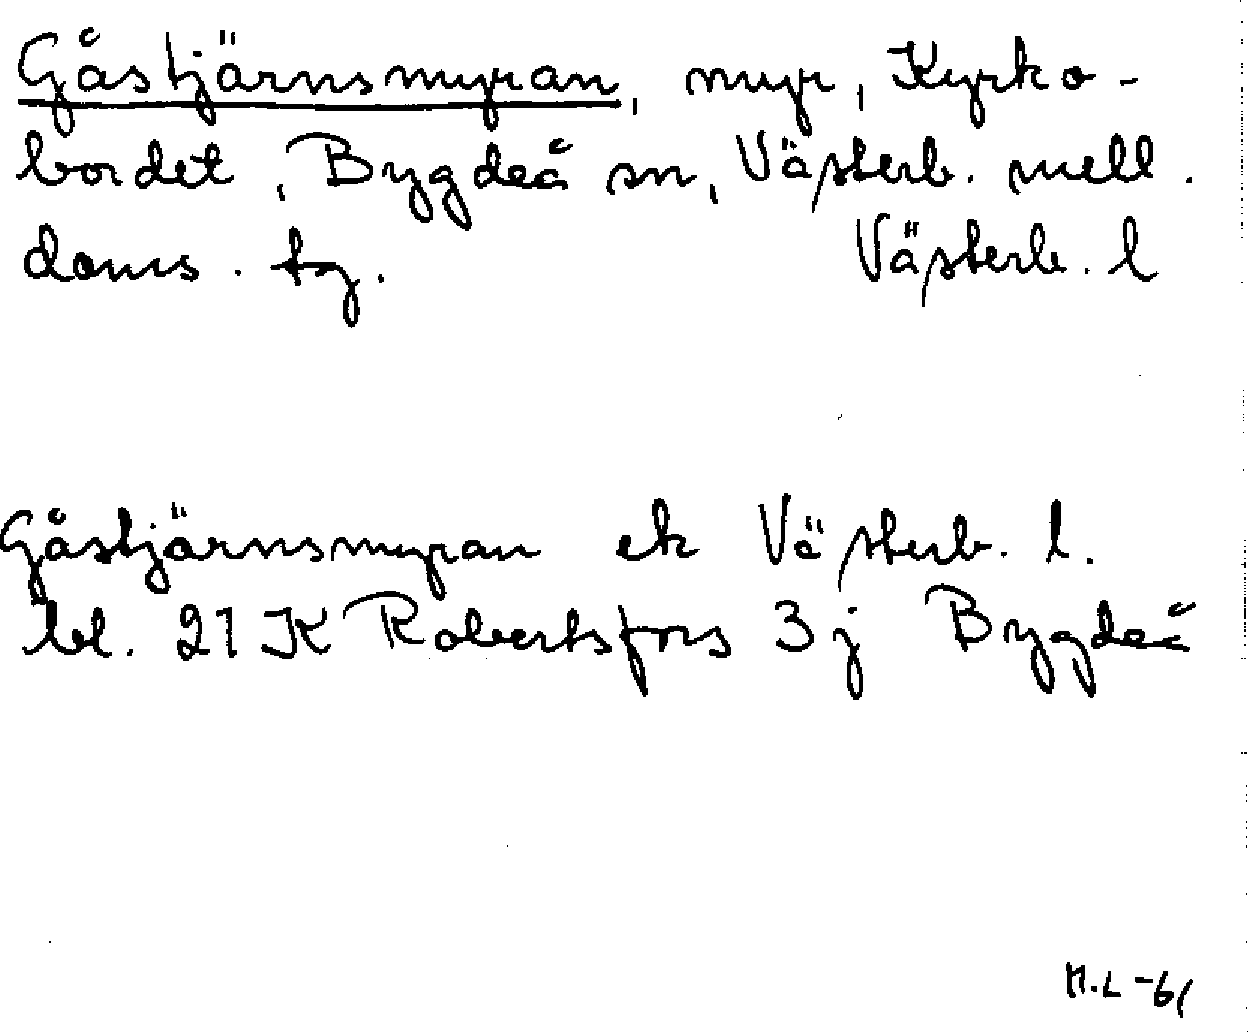 Gåstjärnsmyran, myr, Kyrko-
bordet, Bygdeå sn, Västerb. mell.
doms. tg. Västerb. l
Gåstjärnsmyran ek Västerb. l.
bl. 21 K Robertsfors 3 j Bygdeå
M.L -61